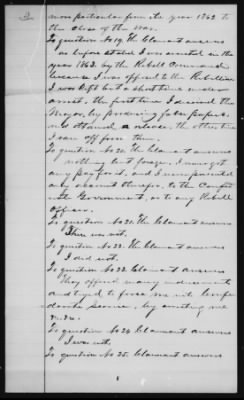 more particular from the year 1862 to
the close of the War.
To question No 19. the Claimant answers
as before stated I was arrested in the
year 1863. by the Rebell Commander
because I was opposed to the Rebellion
I was kept but a short time under
arrest, the first time I deceived the
Mayor, by producing false papers,
and obtained a release, the other time
I ran off from them,
To question No 20. the Claimant answers
nothing but forage, I never got
any pay for it, and I never presented
any account therefor, to the Confed
erate Government, or to any Rebell
Officer.
To question No 21. the Claimant answers
I have not.
To question No 22. the Claimant answers
I did not.
To question No 23. Claimant answers
They offered many inducements
and tryed to force me into Confe
derate service, by arresting me
To question No 24. Claimant answers
I was not.
To question No 25. Claimant answers